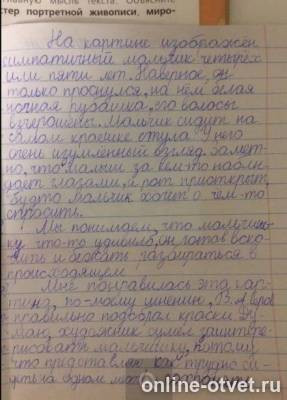 главную мысль текста. Объясните
стер портретной живописи, миро-
На картине изображён
симпатичный мальчик четырёх
или пяти лет. Наверное, он
только проснулся, на нём белая
ночная рубашка, его волосы
взъерошены. Мальчик сидит на
самом краешке стула. У него
очень изумленный взгляд. Замет-
но, что малыш за кем-то наблю-
дает глазами, а рот приоткрыт,
будто мальчик хочет о чем-то
спросить.
Мы понимаем, что мальчиш-
ку что-то удивило, он готов вско-
чить и бежать разбираться в
происходящем
Мне понравилась эта кар-
тина, по-моему мнению, В. А. Серов
правильно подобрал краски. Ду-
маю художник сумел заинтере-
совать мальчишку, потому
что представляю, как трудно си-
деть на одном месте
online-otvet.ru